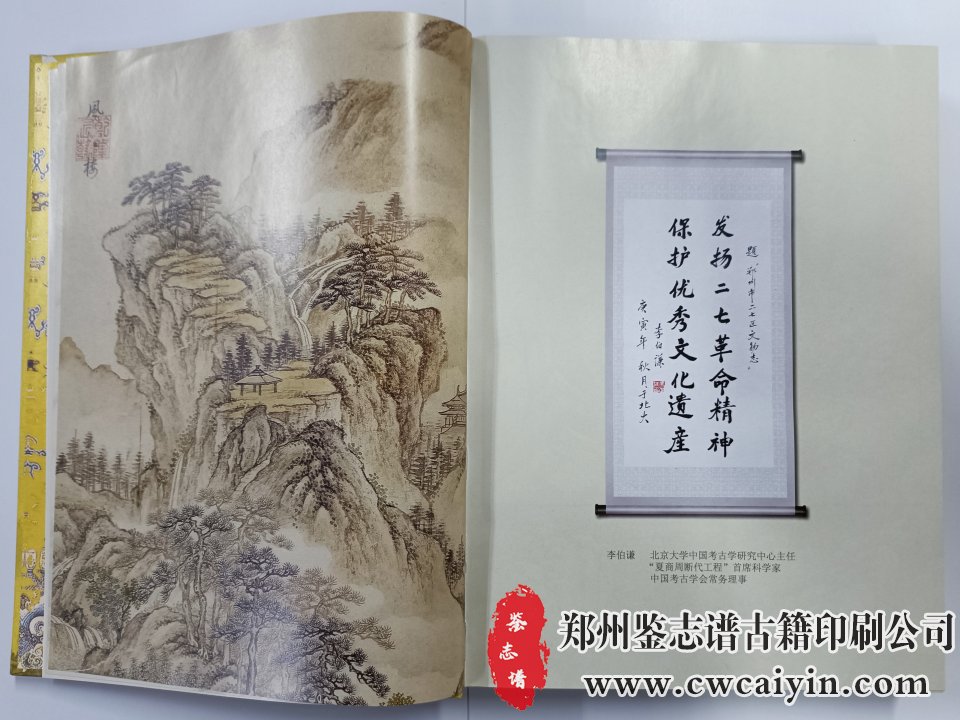 题《郑州市二七区文物志》
发扬二七革命精神
保护优秀文化遗产
李伯谦
庚寅年秋月于北大
李伯谦 北京大学中国考古学研究中心主任
“夏商周断代工程”首席科学家
中国考古学会常务理事
鉴志谱
郑州鉴志谱古籍印刷公司
www.cwcaiyin.com